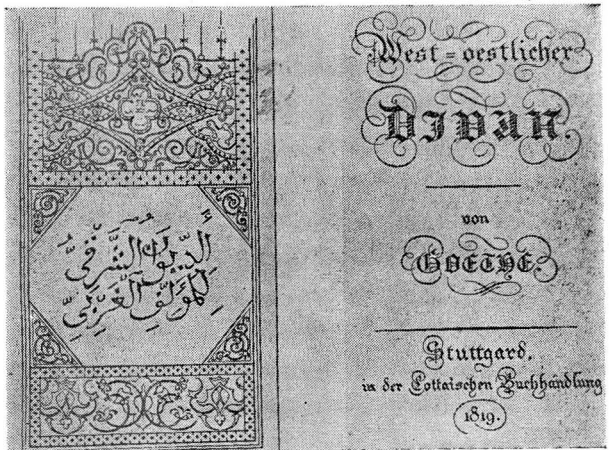 الديوان الشرقي
للمؤلف الغربي
West=oestlicher
DIVAN.
von
GOETHE.
Stuttgard,
in der Cottaischen Buchhandlung
1819.